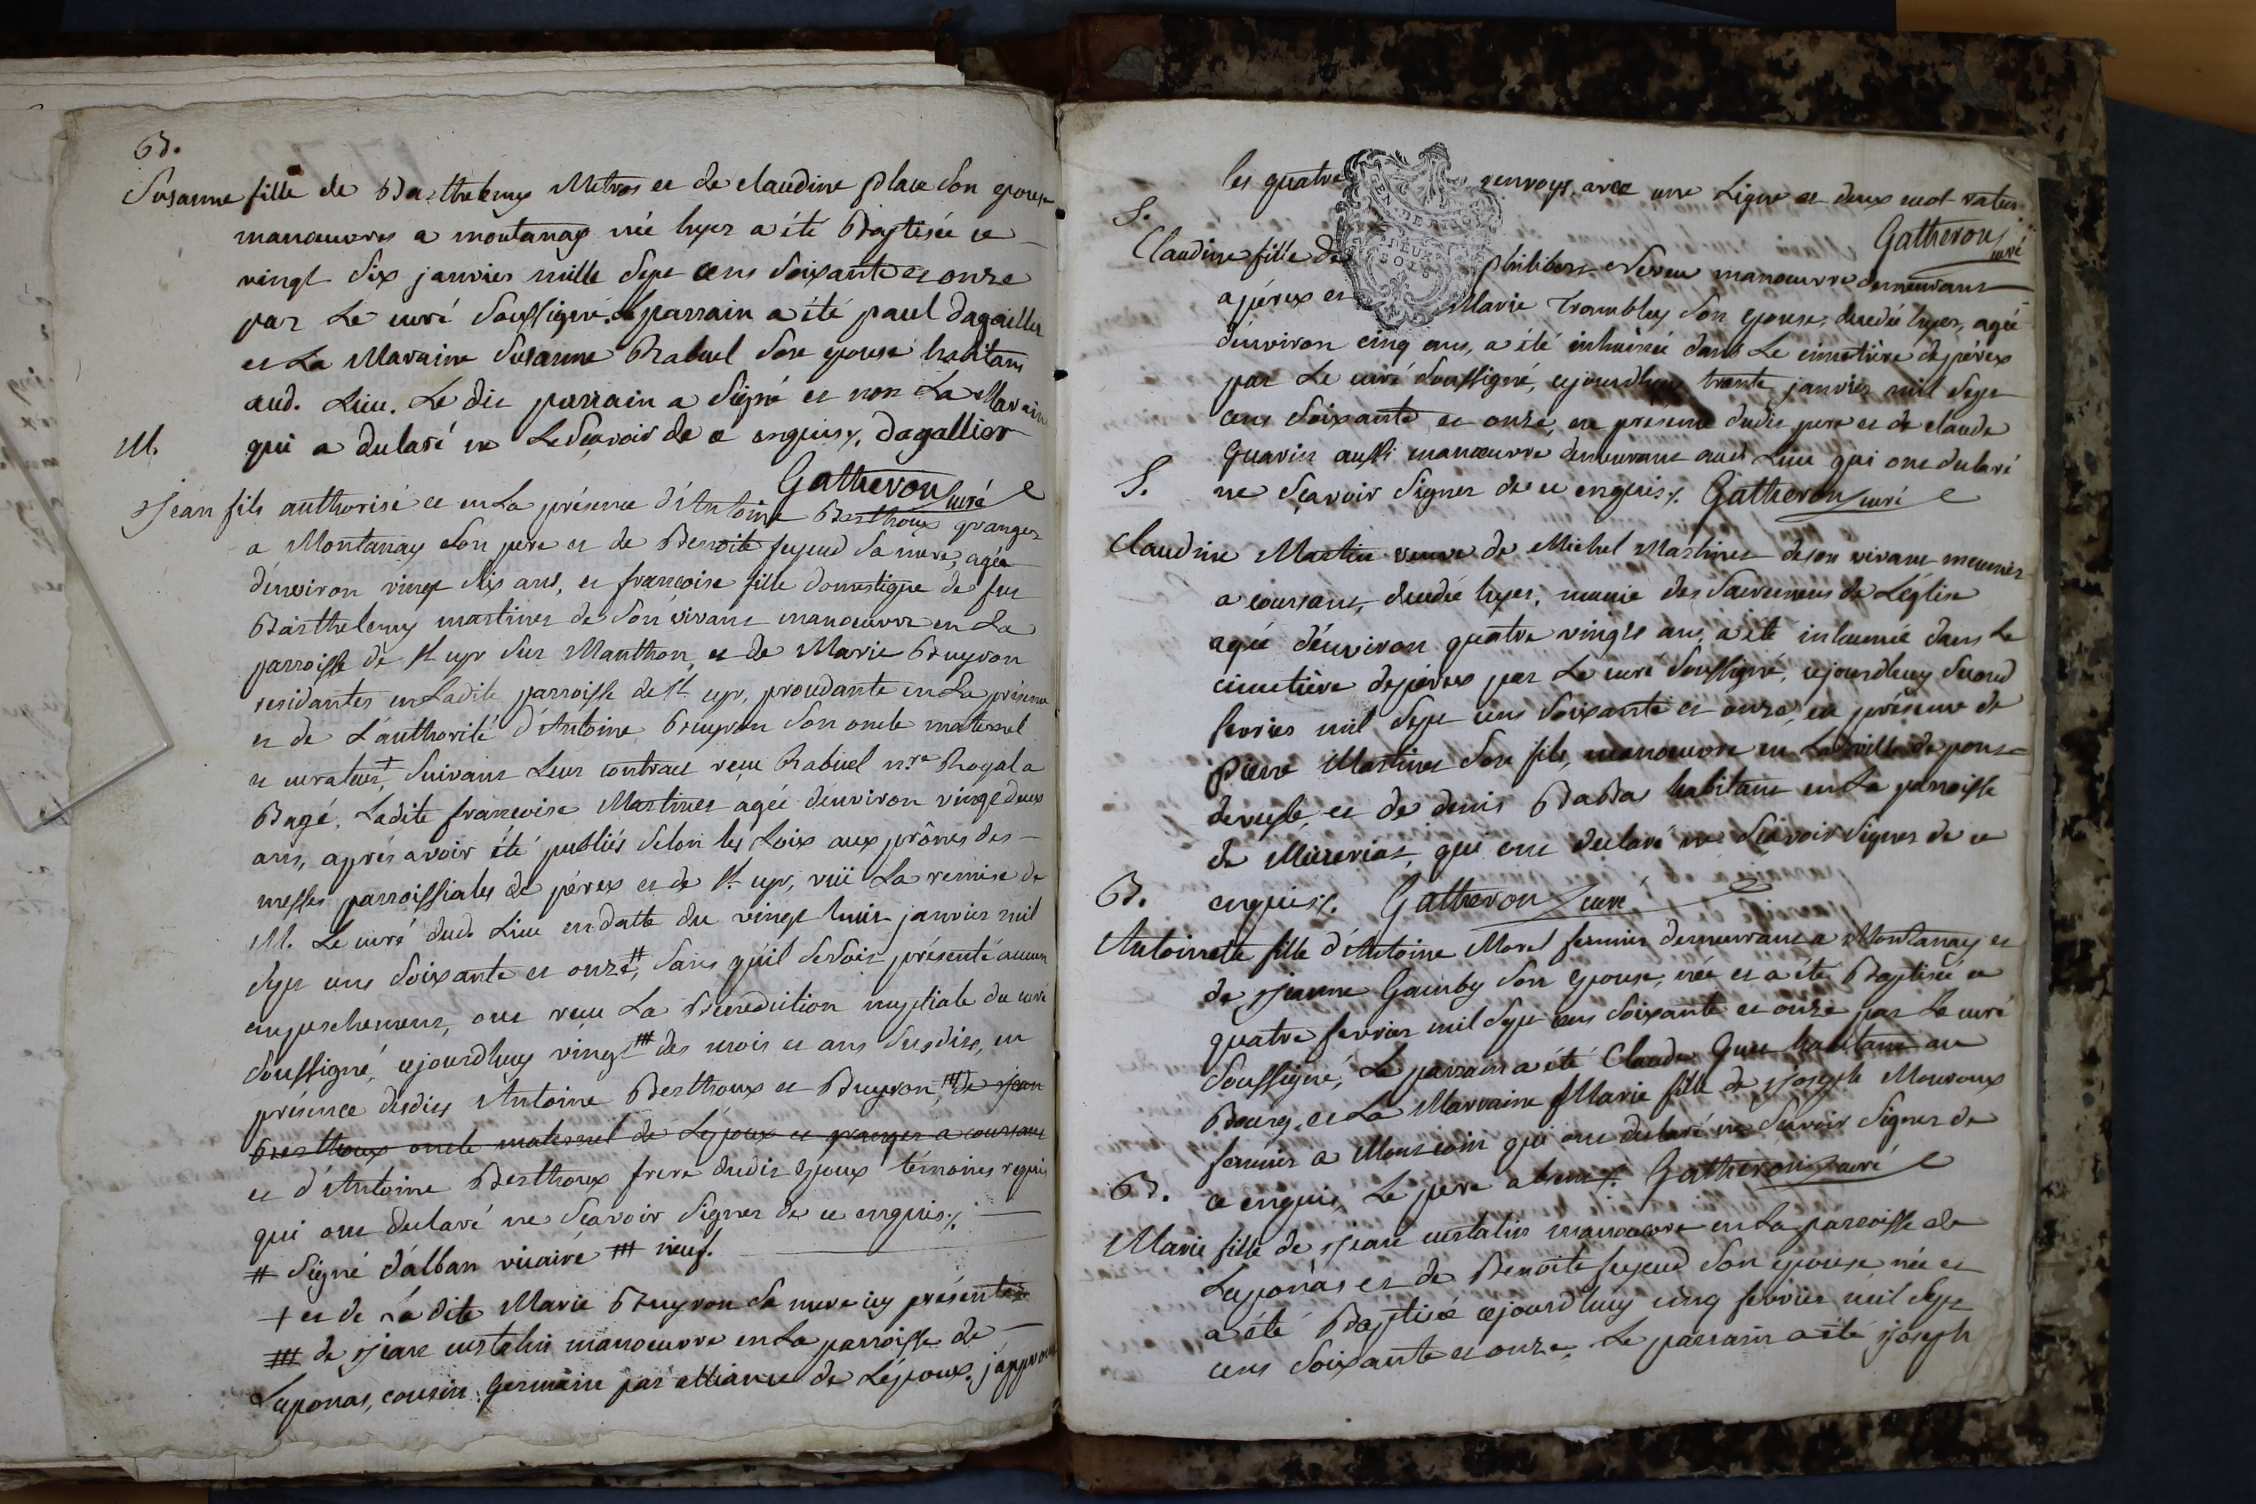 B.
Susanne fille de Barthelemy Metros et de claudine place son epouse
manœuvres a montanay née hyer a été Baptisée ce
vingt six janvier mille sept cens soixante et onze
par Le curé soussigné. Le parrain a été paul Dagallier
et La Maraine Susanne Rabuel son epouse habitans
aud. Lieu. Le dit parrain a signé et non La Maraine
qui a declaré ne Le sçavoir de ce enquis %. Dagallier
Gatheron curé
M.
Jean fils authorisé et en La présence d'Antoine Berthoux granger
a Montanay son pere et de Benoite feyeud sa mere, agée
d'environ vingt six ans, et françoise fille domestique de feu
Barthelemy martinet de son vivant manœuvre en La
parroisse de St cyr sur Manthon, et de Marie Buyron
residantes en Ladite parroisse de St cyr, procedante en La présence
et de L'authorité d'Antoine Buyron son oncle maternel
et curateur +, suivant Leur contract reçu Rabuel nre Royal a
Bagé. Ladite francoise Martinet agée d'environ vingt deux
ans, après avoir été publiés selon les Loix aux prônes des
messes parroissiales de pérex et de St cyr, vuë La remise de
M. Le curé dud. Lieu en datte du vingt huit janvier mil
sept cens soixante et onze #, sans qu'il se soit présenté aucun
empeschement, ont reçu La Benediction nuptiale du curé
soussigné, cejourdhuy vingt ### des mois et ans susdits, en
présence desdits Antoine Berthoux et Buyron, ### de Jean
Berthoux oncle maternel de L'époux et granger a coursant
et d'Antoine Berthoux frere dudit époux témoins requis
qui ont declaré ne sçavoir signer de ce enquis %.
# signé d'alban vicaire ### neuf.
+ et de La dite Marie Buyron sa mere icy présente
### de Jean custalin manœuvre en La parroisse de
Laponas, cousin germain par alliance de L'époux. j'approuve
les quatre renvoys, avec une Ligne et deux mot ratur
Gatheron curé
S.
Claudine fille de philibert Neveu manœuvre demeurant
a pérex et Marie Trombley son epouse, decedée hyer, agée
d'environ cinq ans, a été inhumée dans Le cimetière de pérex
par Le curé soussigné, cejourdhuy trente janvier mil sept
cens soixante et onze, en présence dudit pere et de claude
Guarin aussi manœuvre demeurant aud. Lieu qui ont declaré
ne sçavoir signer de ce enquis %. Gatheron curé
S.
Claudine Martin veuve de Michel Martinet de son vivant meunier
a coursant, decedée hyer, munie des sacremens de L'église
agée d'environ quatre vingts ans, a été inhumée dans Le
cimetière de pérex par Le curé soussigné, cejourdhuy second
fevrier mil sept cens soixante et onze, en présence de
pierre Martinet son fils, manœuvre en La ville de pont
de vesle, et de denis BaBa habitant en La parroisse
de Mézeriat, qui ont declaré ne sçavoir signer de ce
enquis %. Gatheron curé
B.
Antoinette fille d'Antoine Morel fermier demeurant a Montanay et
de Jeanne Gamby son epouse, née et a été Baptisée ce
quatre fevrier mil sept cens soixante et onze par Le curé
soussigné, Le parrain a été Claude habitant au
Bourg, et La Marraine Marie fille de Joseph Monroux
fermier a Montcoin qui ont declaré ne sçavoir signer de
ce enquis, Le pere absent %. Gatheron curé
B.
Marie fille de Jean custalin manœuvre en La parroisse de
Laponas et de Benoite feyeud son epouse née et
a été Baptisée cejourd'huy cinq fevrier mil sept
cens soixante et onze. Le parrain a été joseph